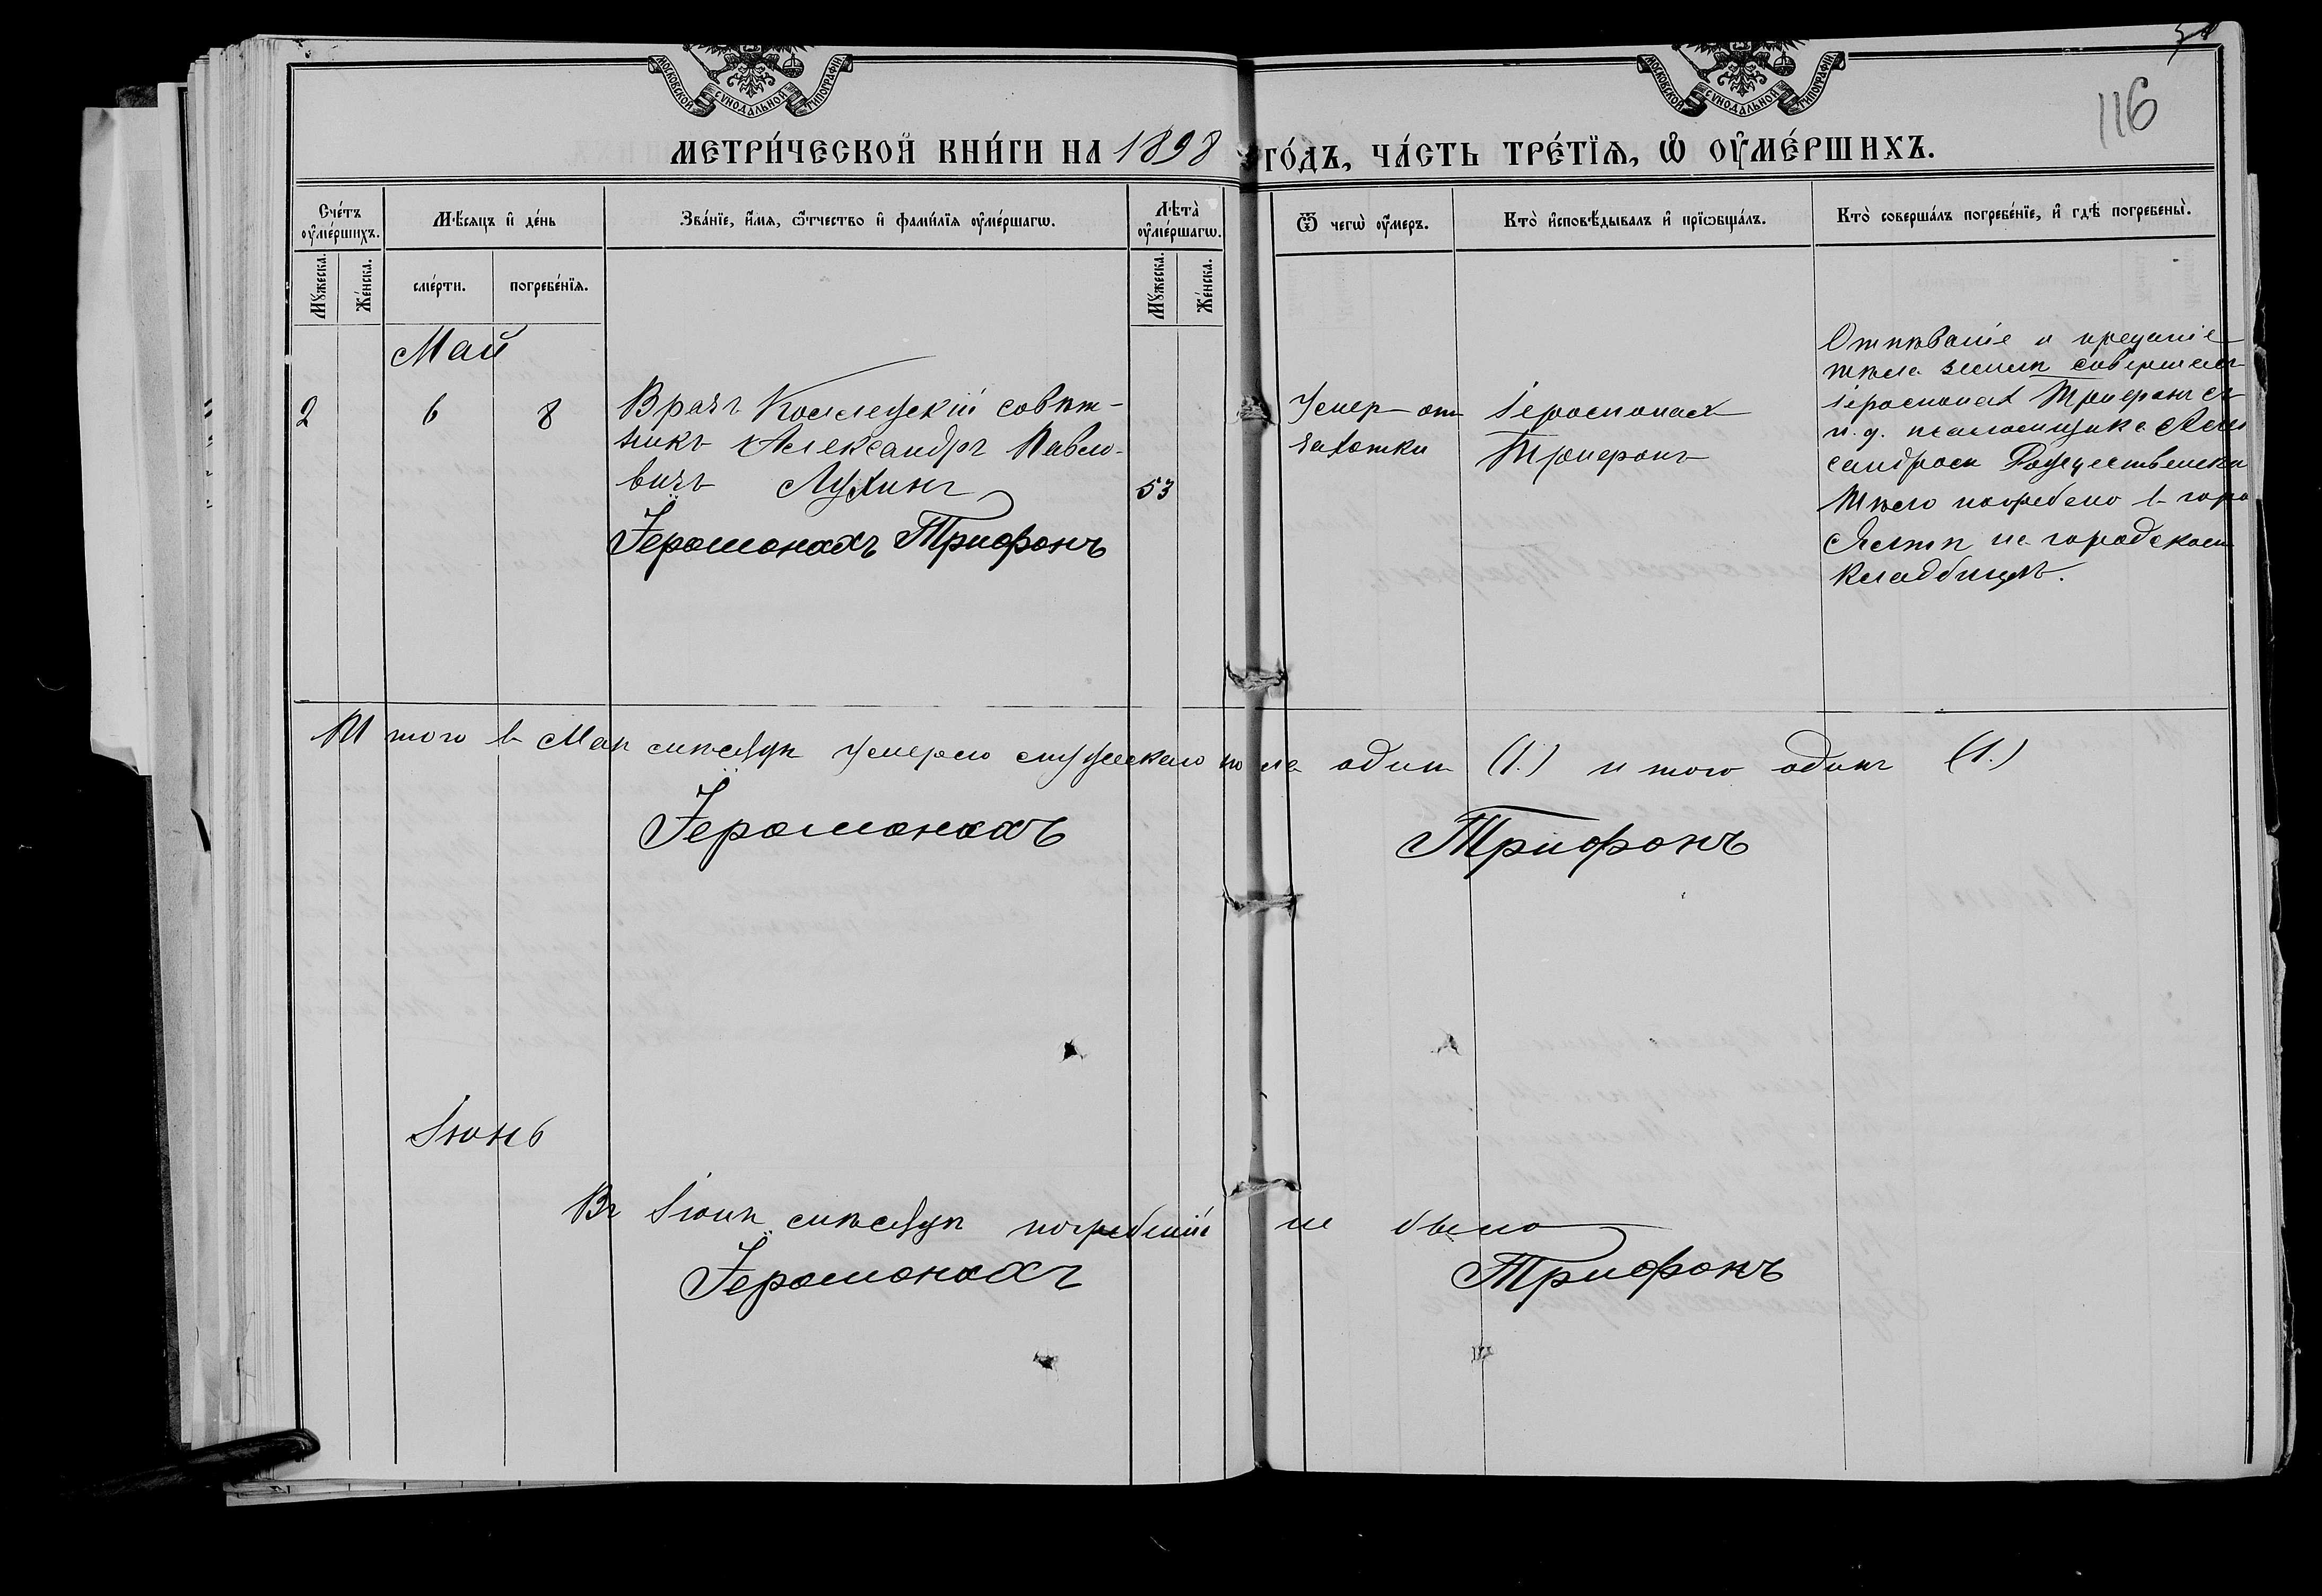 МОСКОВСКОЙ СѴНОДАЛЬНОЙ ТИПОГРАФІИ
МОСКОВСКОЙ СѴНОДАЛЬНОЙ ТИПОГРАФІИ
116
МЕТРИ́ЧЕСКОЙ КНИ́ГИ НА 1898 ГО́ДЪ, ЧА́СТЬ ТРЕ́ТЇѦ, Ѡ҆ ОУ҆МЕ́РШИХЪ.
Сче́тъ оу҆ме́ршихъ.
Мꙋ́жеска.
Же́нска.
Мѣ́сяцъ и҆ де́нь
сме́рти.
погребе́нїѧ.
Зва́нїе, и҆́мѧ, ѻ҆́тчество и҆ фамѝлїѧ оу҆ме́ршагѡ.
Лѣ́та оу҆ме́ршагѡ.
Мꙋ́жеска.
Же́нска.
Ѿ чегѡ̀ оу҆́меръ.
Кто̀ и҆сповѣ́дывалъ и҆ прїѡбща́лъ.
Кто̀ соверша́лъ погребе́нїе, и҆ гдѣ̀ погребены̀.
Май
2
6
8
Врачъ Коллежскій совѣт-
никъ Александръ Павло-
вичъ Лухинъ
53
Іеромонахъ Трифонъ
Умер от
чахотки
Іеромонах
Трифонъ
Отпѣваніе и преданіе
тѣла землѣ совершал
іеромонах Трифонъ съ
и. д. псаломщика Алек
сандром Рождественским
Тѣло погребено в горо
Ялтѣ на городском
кладбищѣ.
Итого в Маѣ мѣсяцѣ умерло мужескаго пола один (1.) итого одинъ (1.)
Іеромонахъ Трифонъ
Іюнь
Въ Іюнѣ мѣсяцѣ погребеній не было
Іеромонахъ Трифонъ